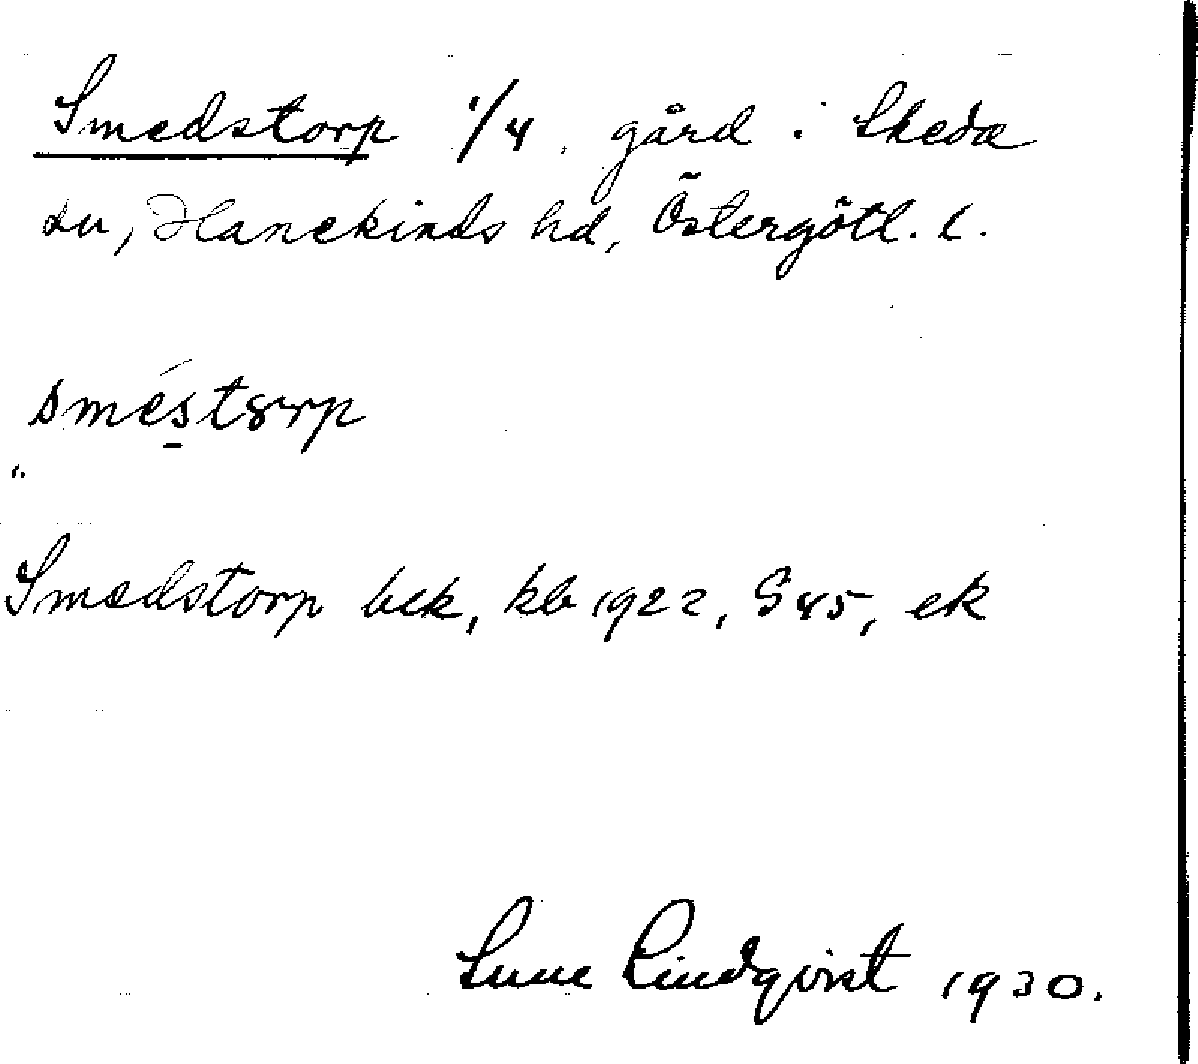 Smedstorp 1/4 gård i Skeda
sn, Hanekinds hd, Östergötl. l.
smés̱tɞrp
Smedstorp bek, kb 1922, S 45, ek
Sune Lindqvist 1930.